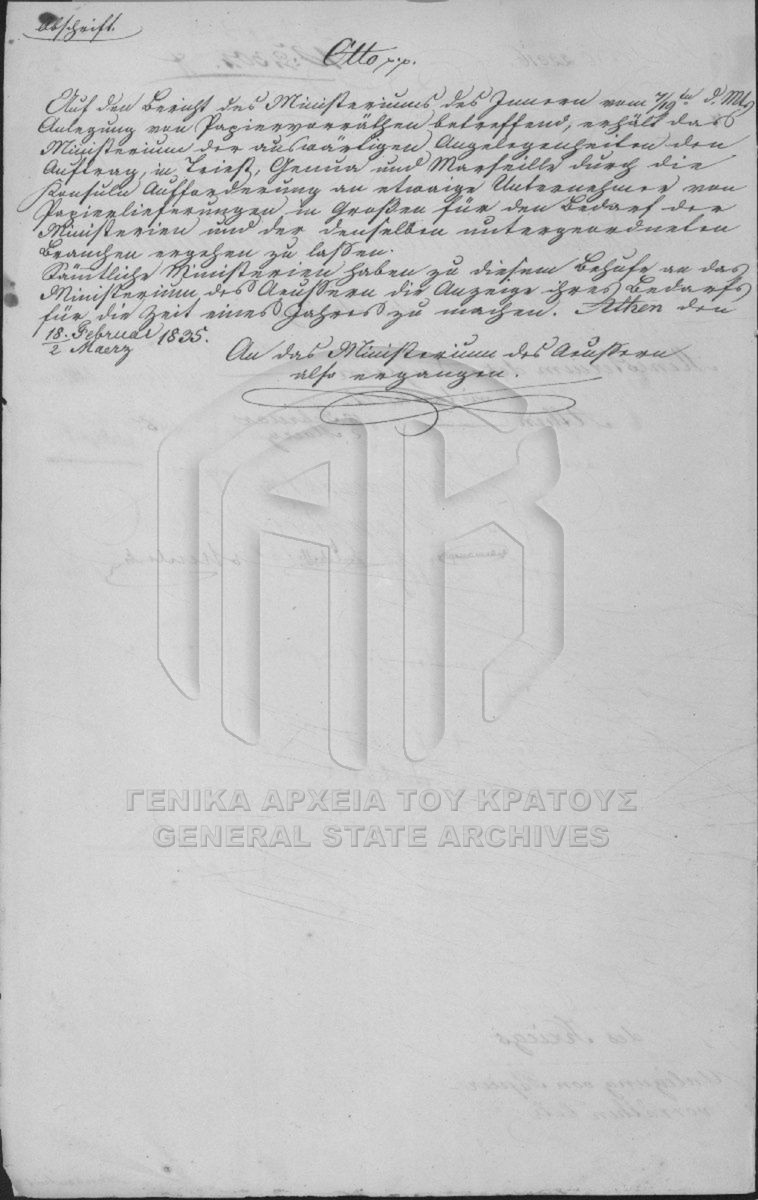 Abschrift.
Otto p.p.
Auf den Bericht des Ministeriums des Innern vom 7/19ten d. Mts
Anlegung von Papiervorräthen betreffend, erhält das
Ministerium der auswärtigen Angelegenheiten den
Auftrag, in Triest, Genua und Marseille durch die
Konsuln Aufforderung an etwaige Unternehmer von
Papierlieferungen in Großen für den Bedarf der
Ministerien und der denselben untergeordneten
Branchen ergehen zu lassen.
Sämtliche Ministerien haben zu diesem Behufe an das
Ministerium des Aeussern die Anzeige ihres Bedarfs
für die Zeit eines Jahres zu machen. Athen den
18. Februar
2 Maerz 1835.
An das Ministerium des Aeussern
also ergangen.
ΓΕΝΙΚΑ ΑΡΧΕΙΑ ΤΟΥ ΚΡΑΤΟΥΣ
GENERAL STATE ARCHIVES
des Kriegs
Anlegung von Papier
vorräthen betr.